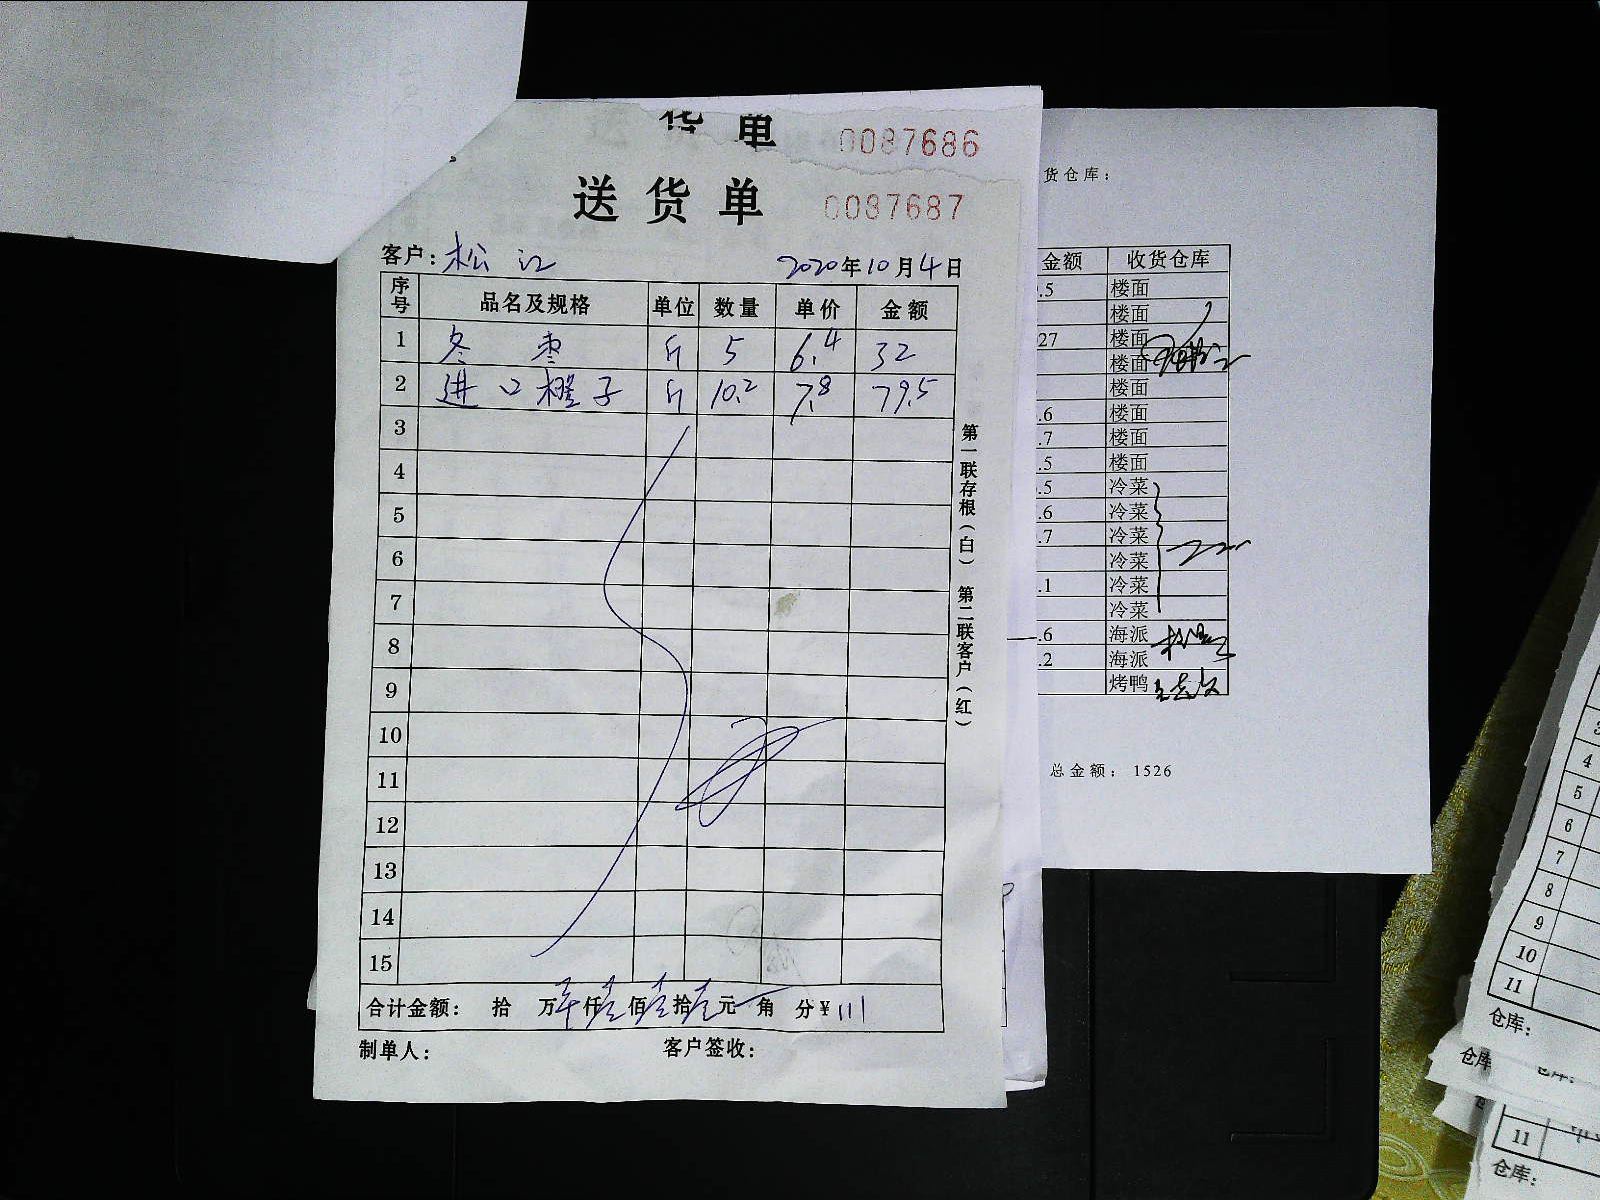 货单 0087686
送货单 0087687
客户：松江 2020年10月4日
序号 品名及规格 单位 数量 单价 金额
1 冬枣 斤 5 6.4 32
2 进口橙子 斤 10.2 7.8 79.5
3
4
5
6
7
8
9
10
11
12
13
14
15
合计金额： 拾 万 仟壹佰壹拾壹元 角 分¥111
制单人： 客户签收：
第一联存根（白） 第二联客户（红）
货仓库：
金额 收货仓库
.5 楼面
楼面
27 楼面
楼面
楼面
.6 楼面
.7 楼面
.5 楼面
.5 冷菜
.6 冷菜
.7 冷菜
冷菜
.1 冷菜
冷菜
.6 海派
.2 海派
烤鸭
总金额： 1526
3
4
5
6
7
8
9
10
11
仓库：
仓库
11
仓库：